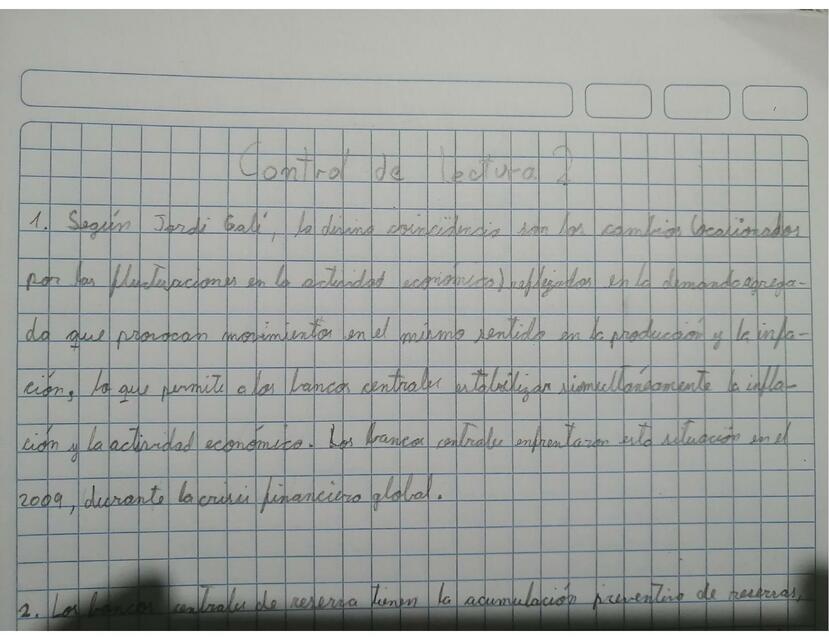 Control de lectura 2
1. Según Jordi Galí, la divina coincidencia son los cambios (ocasionados
por las fluctuaciones en la actividad económica) reflejados en la demanda agrega-
da que provocan movimientos en el mismo sentido en la producción y la infla-
ción, lo que permite a los bancos centrales estabilizar simultáneamente la infla-
ción y la actividad económica. Los bancos centrales enfrentaron esta situación en el
2009, durante la crisis financiera global.
2. Los bancos centrales de reserva tienen la acumulación preventiva de reservas,